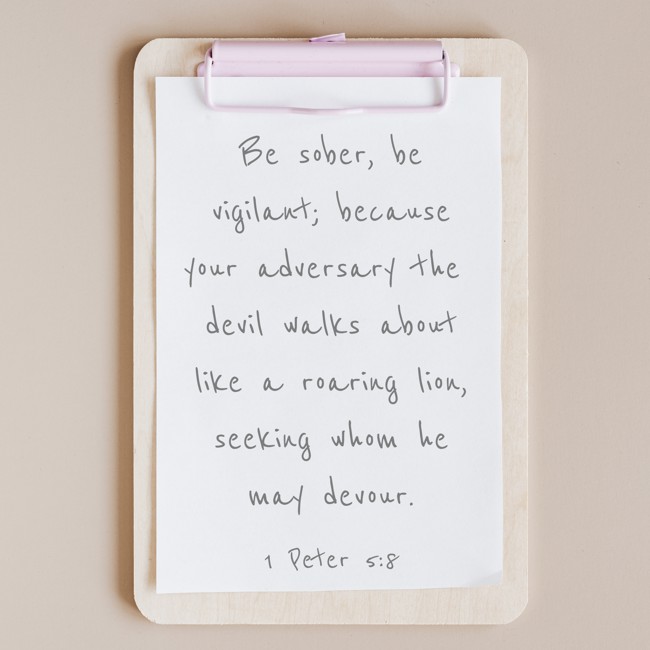 Be sober, be
vigilant; because
your adversary the
devil walks about
like a roaring lion,
seeking whom he
may devour.
1 Peter 5:8